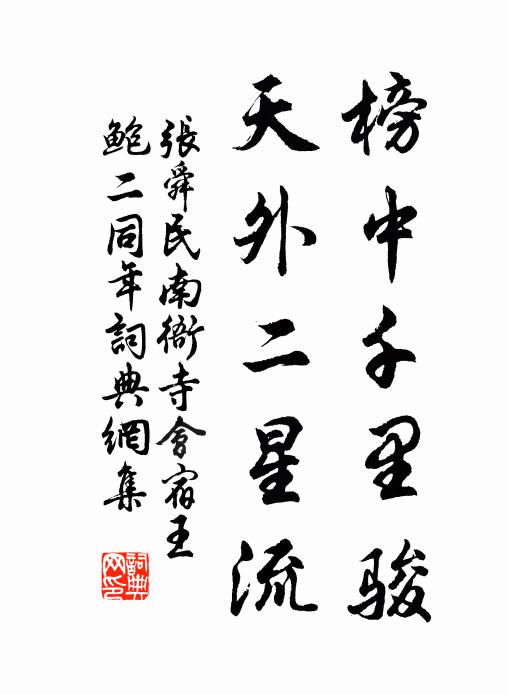 榜中千里駿
天外二星流
張舜民南衙寺會宿王
鮑二同年詞典網集
詞典
网印